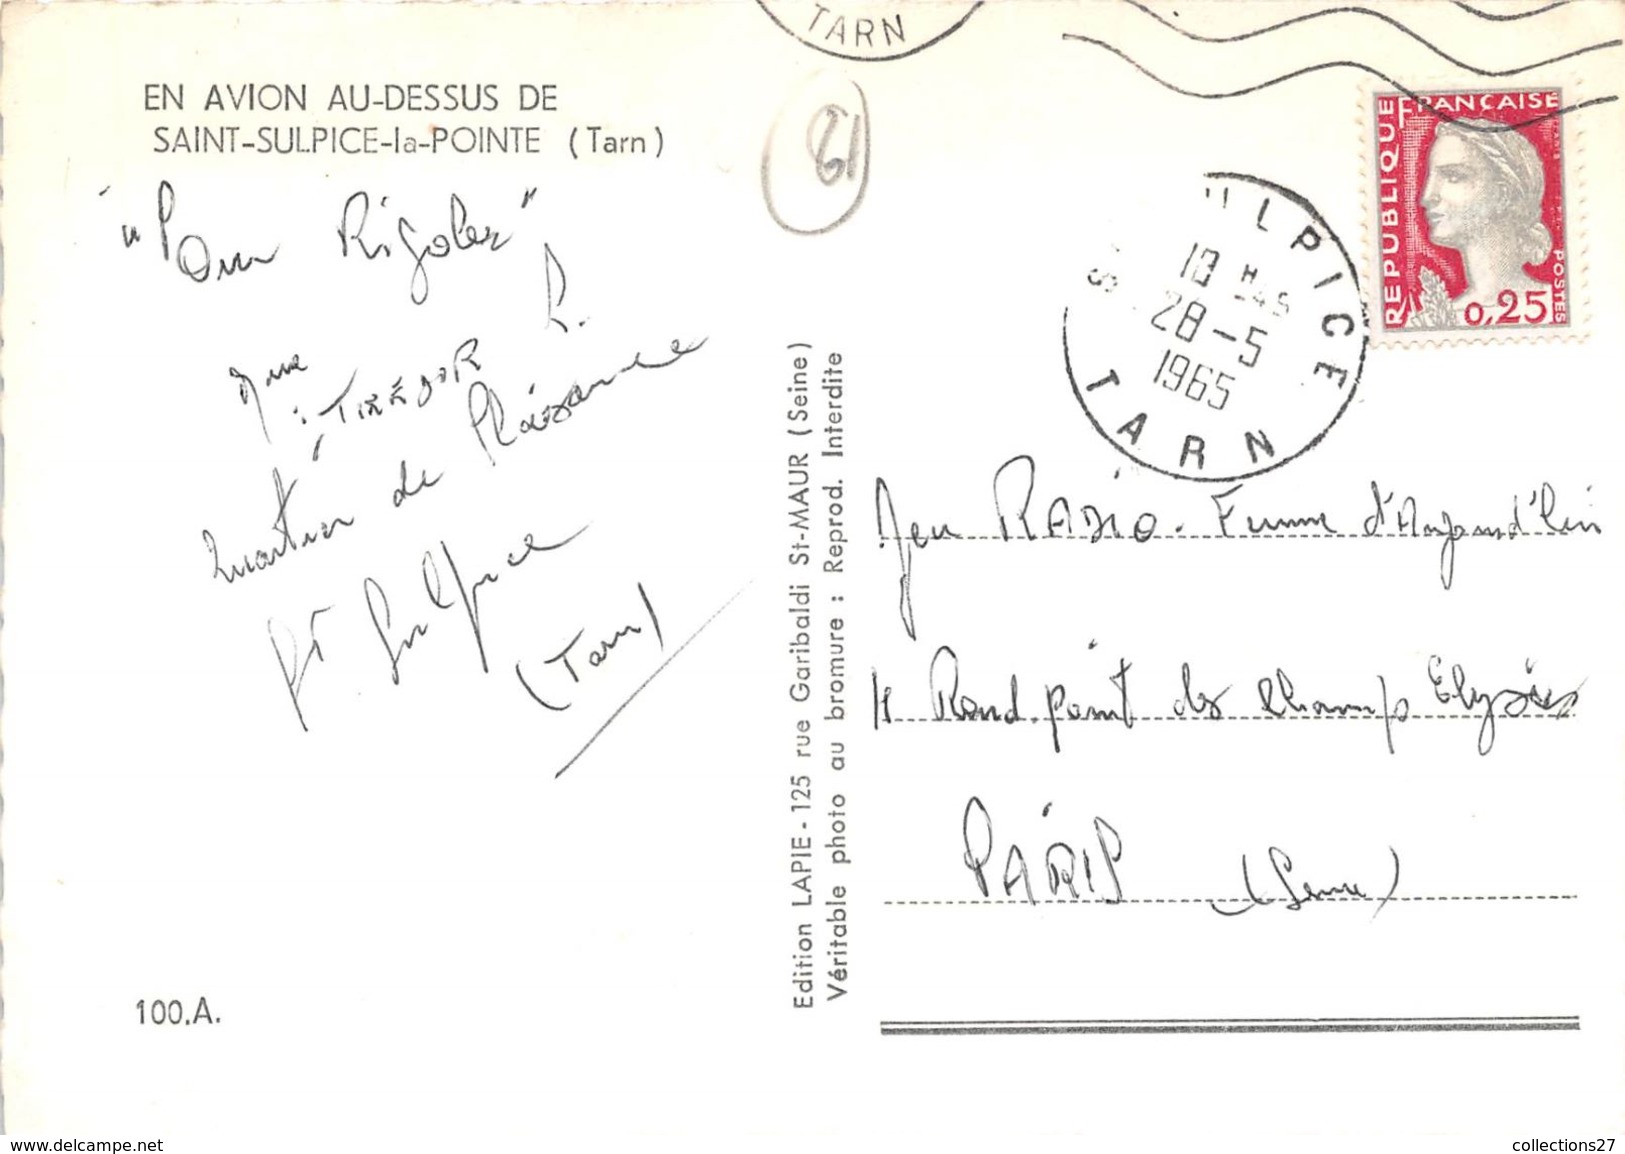 TARN
EN AVION AU-DESSUS DE
SAINT-SULPICE-la-POINTE (Tarn)
61
RÉPUBLIQUE FRANÇAISE
POSTES
0,25
ULPICE
10 H -45
28-5
1965
TARN
"Pour Rigoler"
Mme
TIRÉDOR R.
Quartier de Plaisance
St Sulpice
(Tarn)
Jeu RADIO - Femme d'Aujourd'hui
Rond. point des Champs Elysées
PARIS (Seine)
Edition LAPIE - 125 rue Garibaldi St-MAUR (Seine)
Véritable photo au bromure : Reprod. Interdite
100.A.
www.delcampe.net
collections27